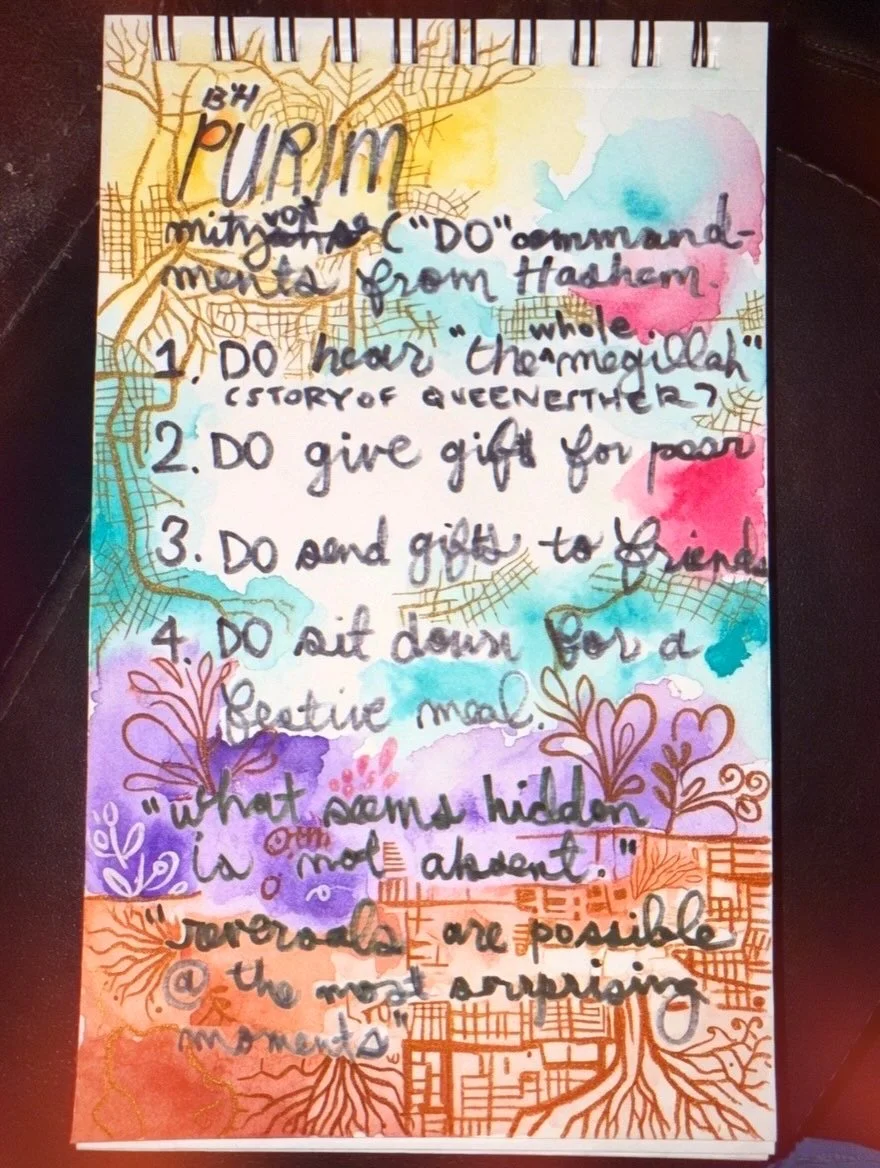 B"H
PURIM
mitzvot ("DO" command-
ments from Hashem.
1. DO hear "the whole megillah"
(STORY OF QUEEN ESTHER)
2. DO give gifts for poor
3. DO send gifts to friends
4. DO sit down for a
festive meal.
"what seems hidden
is not absent."
"reversals are possible
@ the most surprising
moments"